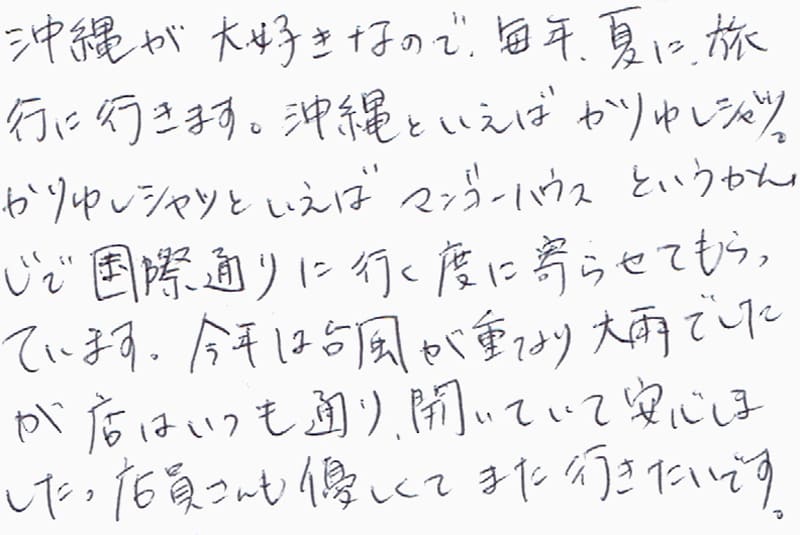 沖縄が大好きなので、毎年、夏に、旅
行に行きます。沖縄といえばかりゆしシャツ。
かりゆしシャツといえばマンゴーハウスというかん
じで国際通りに行く度に寄らせてもらっ
ています。今年は台風が重なり大雨でした
が店はいつも通り、開いていて安心しま
した。店員さんも優しくてまた行きたいです。